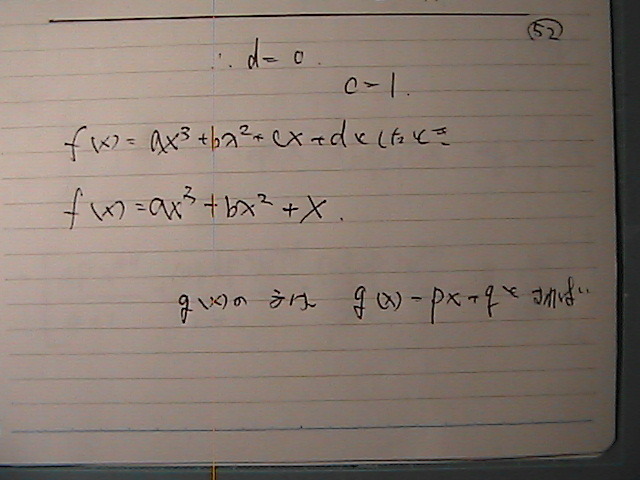 52
∴ d = 0.
c = 1.
f(x) = ax³ + bx² + cx + d としたとき
f(x) = ax³ + bx² + x.
g(x)の方は g(x) = px + q と すれば